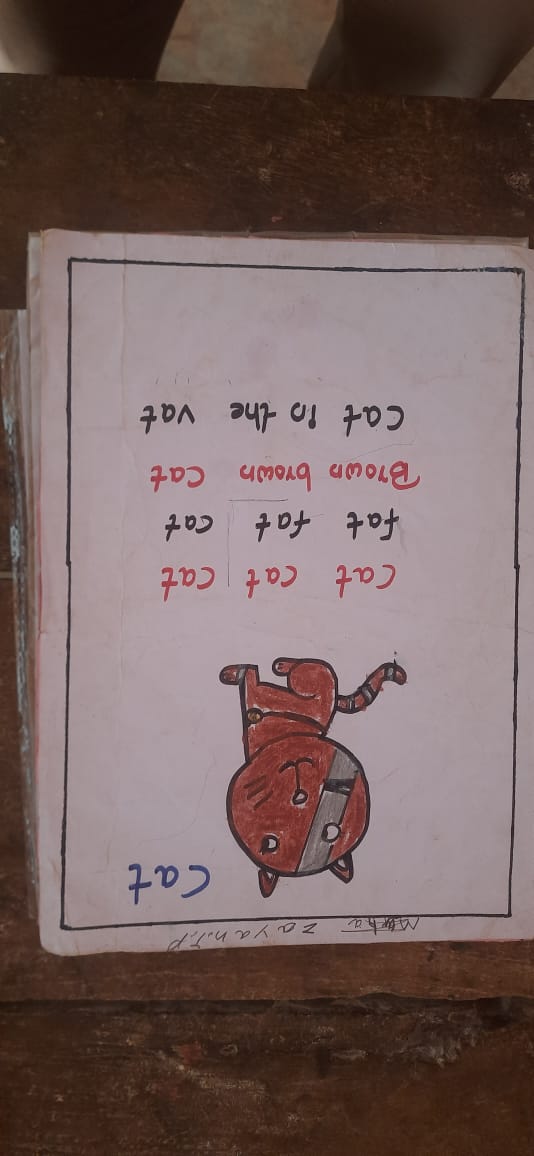 zayan.T.P
Cat
Cat cat cat
fat fat cat
Brown brown Cat
Cat in the vat